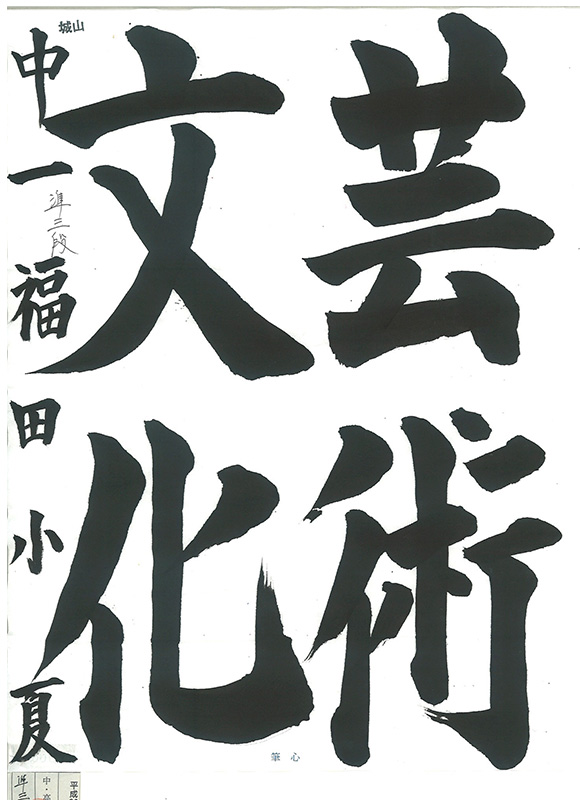 芸術
文化
城山
中一 福田小夏
準三段
心筆
準三
中・高
平成